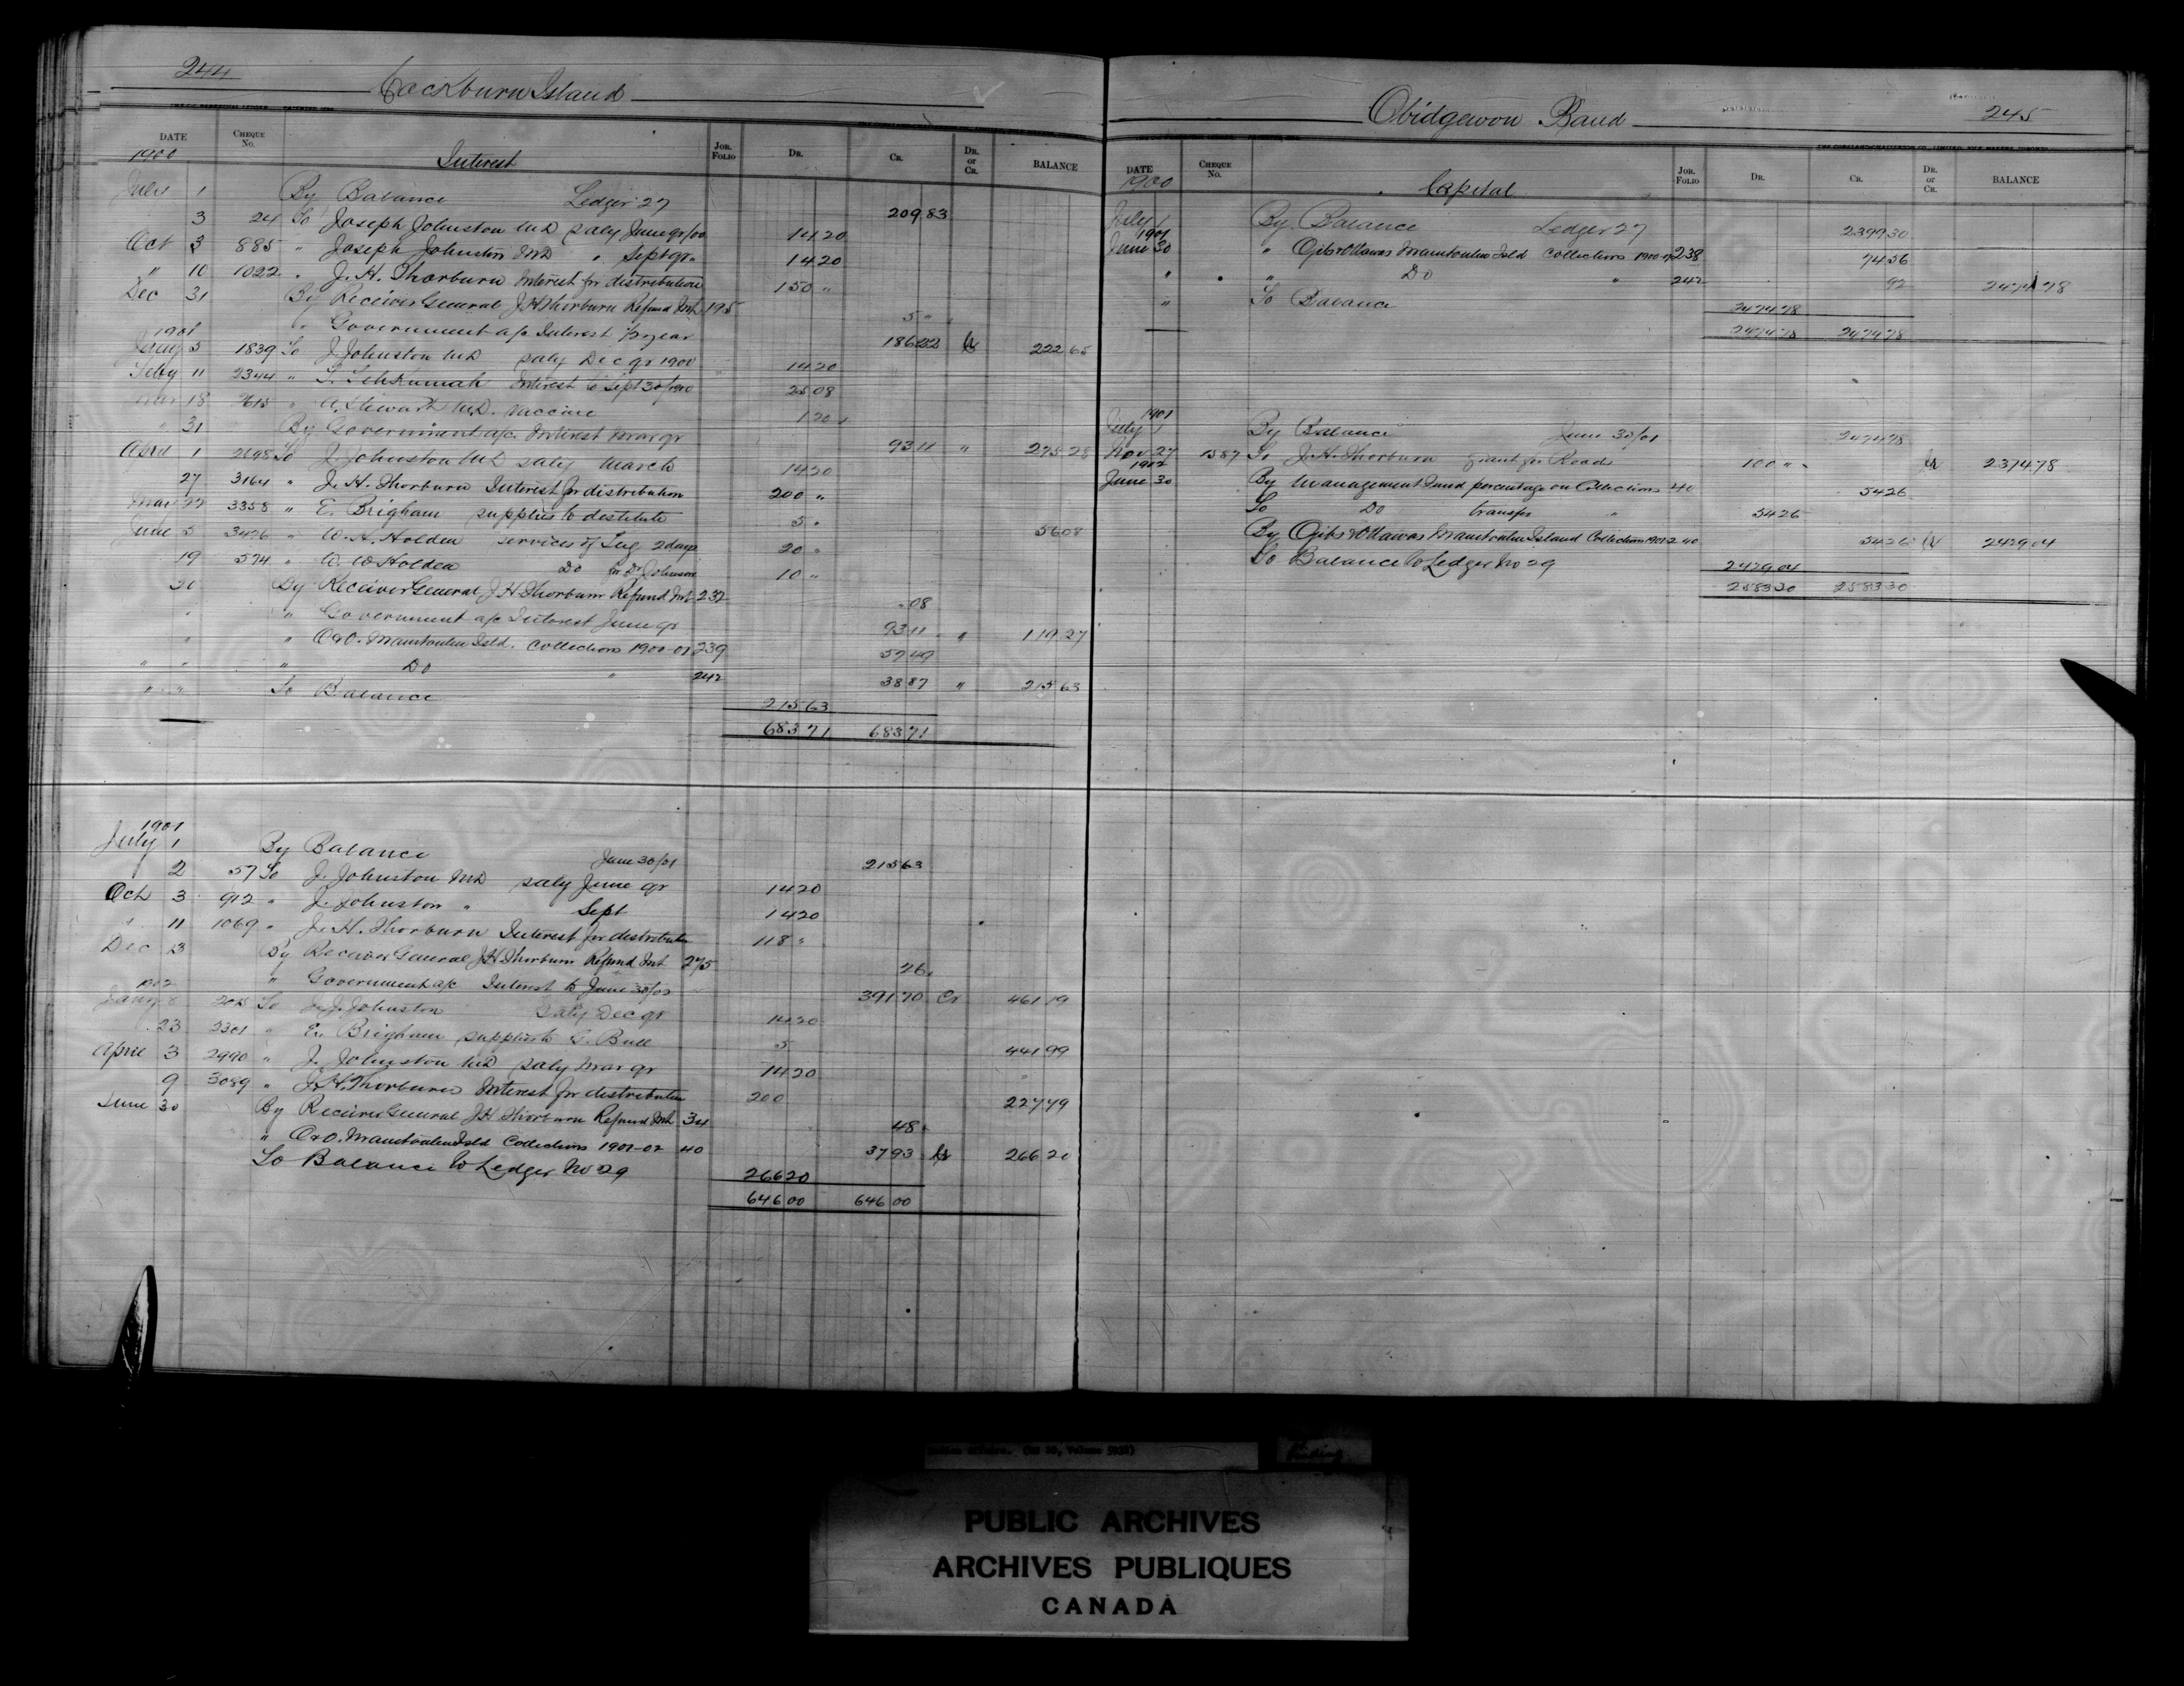 244
Cockburn Island
DATE CHEQUE No. JOR. FOLIO DR. CR. DR. or CR. BALANCE
1900 Interest
July 1 By Balance Ledger 27 209 83
3 24 To Joseph Johnston M.D. saly June qr/00 14 20
Oct 3 885 " Joseph Johnston M.D. " Sept qr " 14 20
" 10 1022 " J. H. Thorburn Interest for distribution 150 "
Dec 31 By Receiver General J H Thorburn Refund Int 195 5 "
" Government a/c Interest ½ year 186 22 Cr 222 65
1901
Jany 5 1839 To J. Johnston M.D. saly Dec qr 1900 14 20
Feby 11 2344 " Interest to Sept 30/1900 25 08
Mar 18 2615 " A. Stewart M.D. Vaccine 1 20
" 31 By Government a/c Interest Mar qr 93 11 " 275 28
April 1 2698 To J. Johnston M.D. saly March 14 20
27 3164 " J. H. Thorburn Interest for distribution 200 "
May 22 3358 " E. Brigham supplies to destitute 5 " 56 08
June 5 3426 " W. A. Holden services of Tug 2 days 20 "
19 574 " W. W Holden Do for Dr Johnson 10 "
30 By Receiver General J H Thorburn Refund Int 232 " 08
" " Government a/c Interest June qr 93 11 " 119 27
" " O & O. Manitoulin Isld. Collections 1900-01 239 57 49
" " " Do " 242 38 87 " 215 63
" " To Balance 215 63
683 71 683 71
1901
July 1 By Balance June 30/01 215 63
2 57 To J. Johnston M.D. saly June qr 14 20
Oct 3 912 " J. Johnston " Sept 14 20
" 11 1069 " J. H. Thorburn Interest for distribution 118 "
Dec 13 By Receiver General J H Thorburn Refund Int 275 " 26
" Government a/c Interest to June 30/02 391 70 Cr 461 19
1902
Jany 8 2015 To J. Johnston Saly Dec qr 14 20
23 2301 " E. Brigham supplies to Bull 5 441 99
April 3 2990 " J. Johnston M.D. saly Mar qr 14 20
9 3089 " J. H. Thorburn Interest for distribution 200 227 79
June 30 By Receiver General J H Thorburn Refund Int 34 48
" O & O. Manitoulin Isld Collections 1901-02 40 37 93 Cr 266 20
To Balance to Ledger No 29 266 20
646 00 646 00
Obidgewon Band
245
DATE CHEQUE No. JOR. FOLIO DR. CR. DR. or CR. BALANCE
1900 Capital
July 1 By Balance Ledger 27 2399 30
1901
June 30 " Ojibs & Ottawas Manitoulin Isld Collections 1900-01 238 74 56
" " Do " 242 92 2474 78
" To Balance 2474 78
2474 78 2474 78
1901
July 1 By Balance June 30/01 2474 78
Nov 27 1587 To J. H. Thorburn grant for Roads 100 " Cr 2374 78
1902
June 30 By Management Fund percentage on Collections 40 54 26
To Do transfer " 54 26
By Ojibs & Ottawas Manitoulin Island Collections 1901-2 40 54 26 Cr 2429 04
To Balance to Ledger No 29 2429 04
2583 30 2583 30
Indian Affairs. (RG 10, Volume 5932)
PUBLIC ARCHIVES
ARCHIVES PUBLIQUES
CANADA